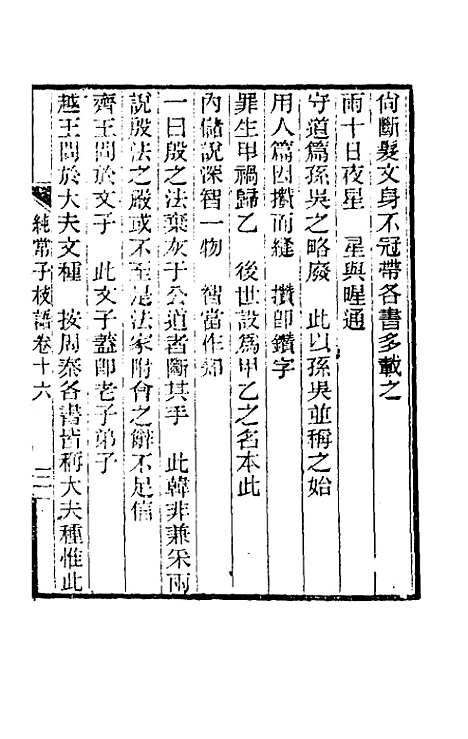 尙斷髮文身不冠帶各書多載之
雨十日夜星　星與暒通
守道篇孫吳之略廢　此以孫吳並稱之始
用人篇因攢而縫　攢卽鑽字
罪生甲禍歸乙　後世設爲甲乙之名本此
內儲說深智一物　智當作知
一曰殷之法棄灰于公道者斷其手　此韓非兼采兩
說殷法之嚴或不至是法家附會之辭不足信
齊王問於文子　此文子蓋卽老子弟子
越王問於大夫文種　按周秦各書皆稱大夫種惟此
純常子枝語卷十六　二